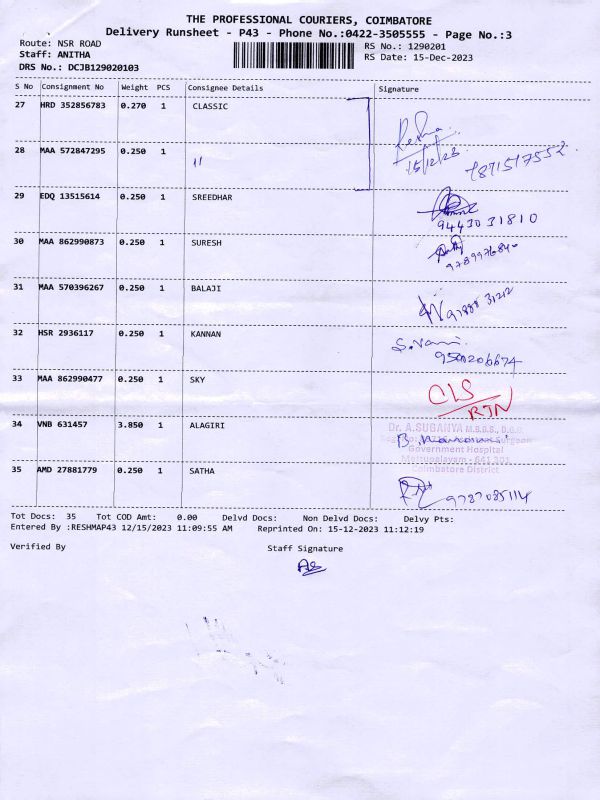 THE PROFESSIONAL COURIERS, COIMBATORE
Delivery Runsheet - P43 - Phone No.:0422-3505555 - Page No.:3
Route: NSR ROAD
RS No.: 1290201
Staff: ANITHA
RS Date: 15-Dec-2023
DRS No.: DCJB129020103
S No Consignment No Weight PCS Consignee Details Signature
27 HRD 352856783 0.270 1 CLASSIC
15/12/23
28 MAA 572847295 0.250 1 11
29 EDQ 13515614 0.250 1 SREEDHAR
9443031810
30 MAA 862990873 0.250 1 SURESH
31 MAA 570396267 0.250 1 BALAJI
32 HSR 2936117 0.250 1 KANNAN
S.Vani
9500206674
33 MAA 862990477 0.250 1 SKY CLS
RTN
34 VNB 631457 3.850 1 ALAGIRI
Dr. A.SUGANYA M.B.B.S., D.G.O.
Government Hospital
Mettupalayam - 641 301
Coimbatore District
35 AMD 27881779 0.250 1 SATHA
9787085114
Tot Docs: 35 Tot COD Amt: 0.00 Delvd Docs: Non Delvd Docs: Delvy Pts:
Entered By :RESHMAP43 12/15/2023 11:09:55 AM Reprinted On: 15-12-2023 11:12:19
Verified By Staff Signature